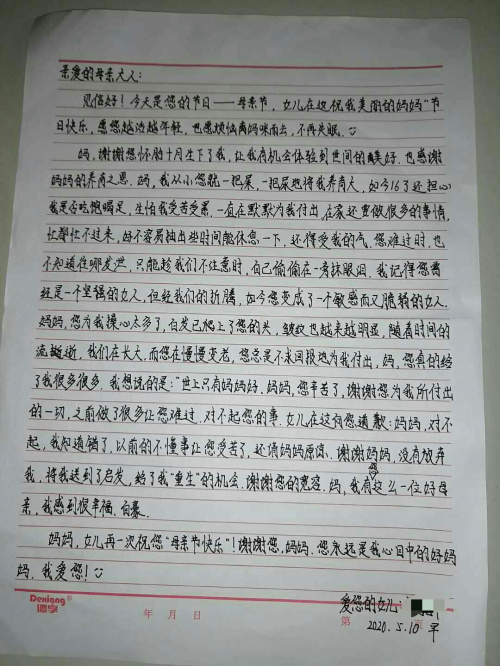 亲爱的母亲大人:
见信好!今天是您的节日——母亲节,女儿在这祝我美丽的妈妈"节
日快乐,愿您越活越年轻,也愿烦恼离妈咪而去,不再失眠.
妈,谢谢您怀胎十月生下了我,让我有机会体验到世间的美好.也感谢
妈妈的养育之恩.妈,我从小您就一把屎,一把尿地将我养育大,如今16了还担心
我是否吃饱喝足,生怕我受苦受累.一直在默默为我付出,在家还要做很多的事情,
忙都忙不过来,好不容易抽出些时间能休息一下,还得受我的气.您难过时,也
不知道在哪发泄,只能趁我们不注意时,自己偷偷在一旁抹眼泪.我记得您曾
经是一个坚强的女人,但经我们的折腾,如今您变成了一个敏感而又脆弱的女人.
妈妈,您为我操心太多了,白发已爬上了您的头,皱纹也越来越明显,随着时间的
流逝,我们在长大,而您在慢慢变老,您总是不求回报地为我付出,妈,您真的给
了我很多很多.我想说的是:"世上只有妈妈好.妈妈,您辛苦了,谢谢您为我所付出
的一切,之前做了很多让您难过.对不起您的事.女儿在这向您道歉:妈妈,对不
起,我知道错了,以前的不懂事让您受苦了,还请妈妈原谅.谢谢妈妈,没有放弃
我,将我送到了启发,给了我"重生"的机会.谢谢您的宽容.妈,我有您这么一位好母
亲,我感到很幸福.自豪.
妈妈,女儿再一次祝您"母亲节快乐"!谢谢您,妈妈.您永远是我心目中的好妈
妈.我爱您!
爱您的女儿:
Dexiang®
德享
年 月 日
第 页
2020.5.10